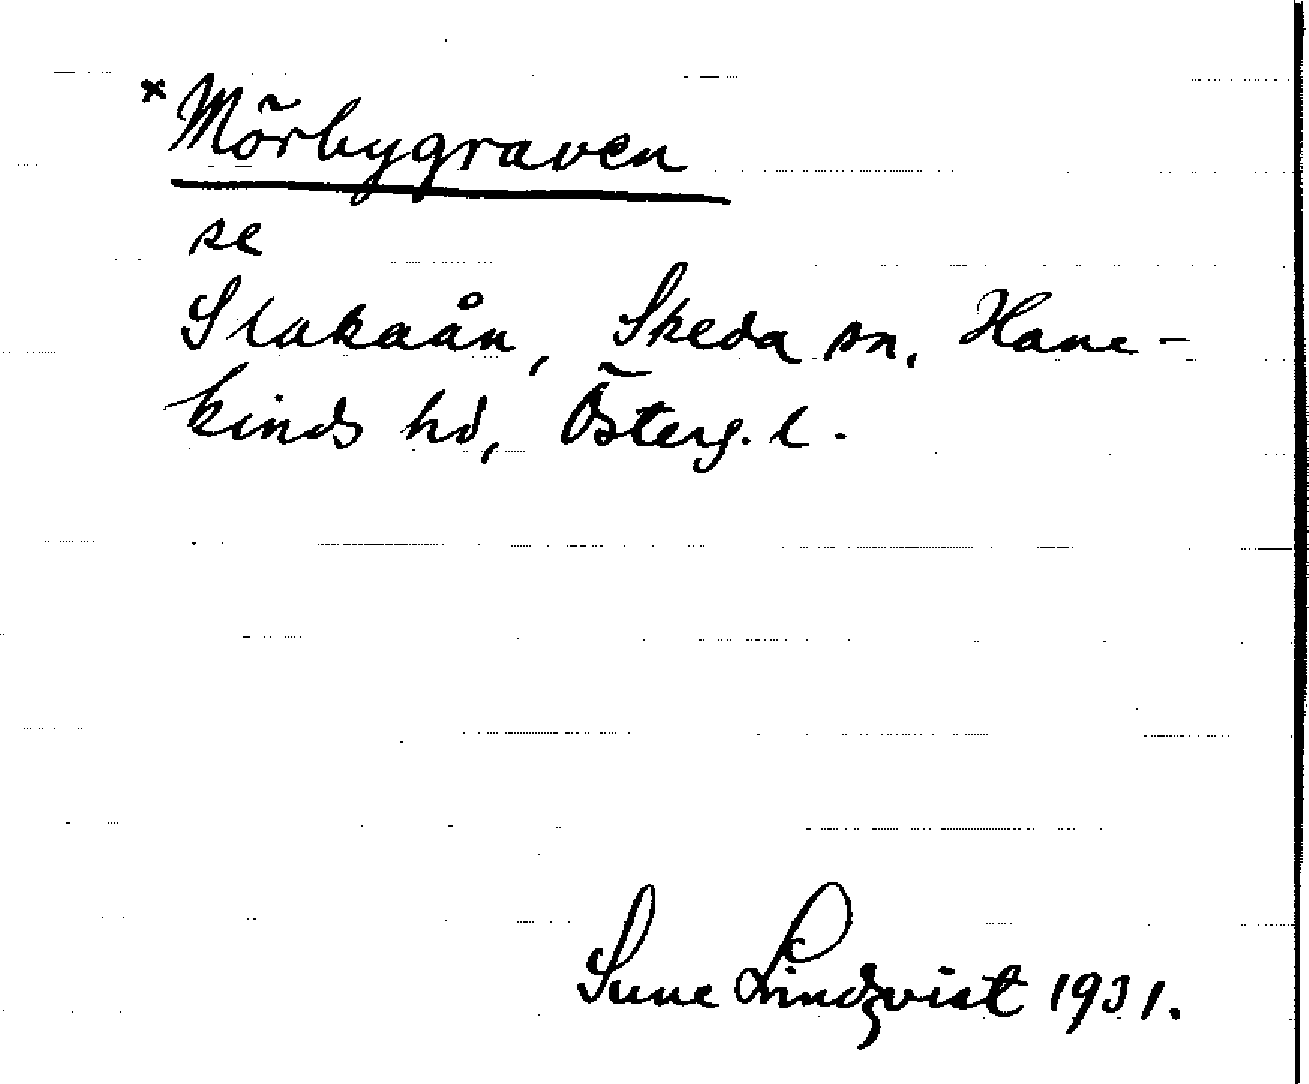 × Mörbygraven
se
Slakaån, Skeda sn. Hane-
kinds hd, Österg. l.
Sune Lindqvist 1931.